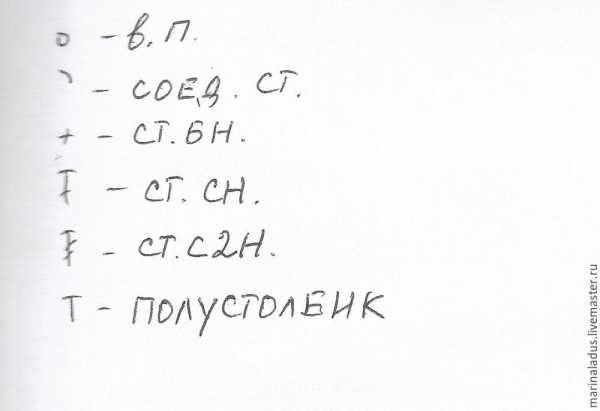 o - в. п.
⌒ - СОЕД. СТ.
+ - СТ. БН.
Ŧ - СТ. СН.
Ŧ - СТ. С2Н.
T - ПОЛУСТОЛБИК
marinaladus.livemaster.ru